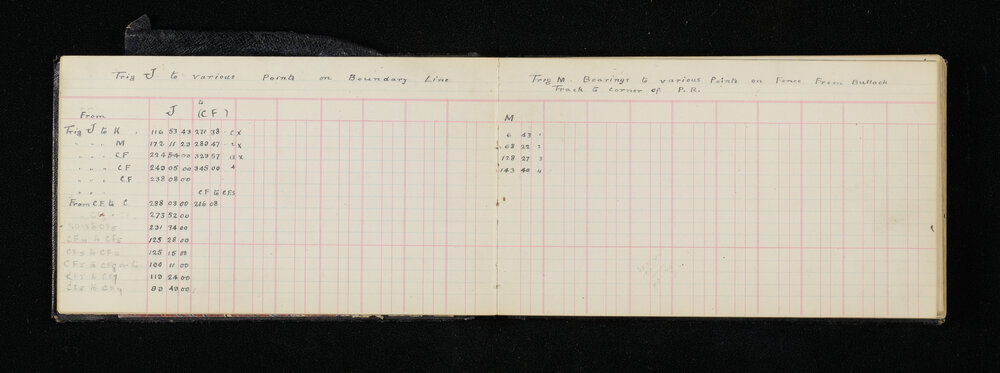 Trig J to various Points on Boundary Line
to
From J (CF)
Trig J to K 116 53 43 271 38 CX
" " " M 172 11 23 280 47 X
" " " CF 224 54 00 323 57 X
" " " CF 240 05 00 345 00 4
" " " CF 238 08 00
" " " CF to CFS
From C.F. to C. 288 03 00 216 08
273 52 00
231 34 00
CF4 to CF5 125 28 00
125 15 00
100 11 00
CF5 to CF9 110 24 00
80 40 00
Trig M. Bearings to various Points on Fence From Bullock
Track to corner of P.R.
M
6 43 1
68 22 2
128 27 3
143 40 4